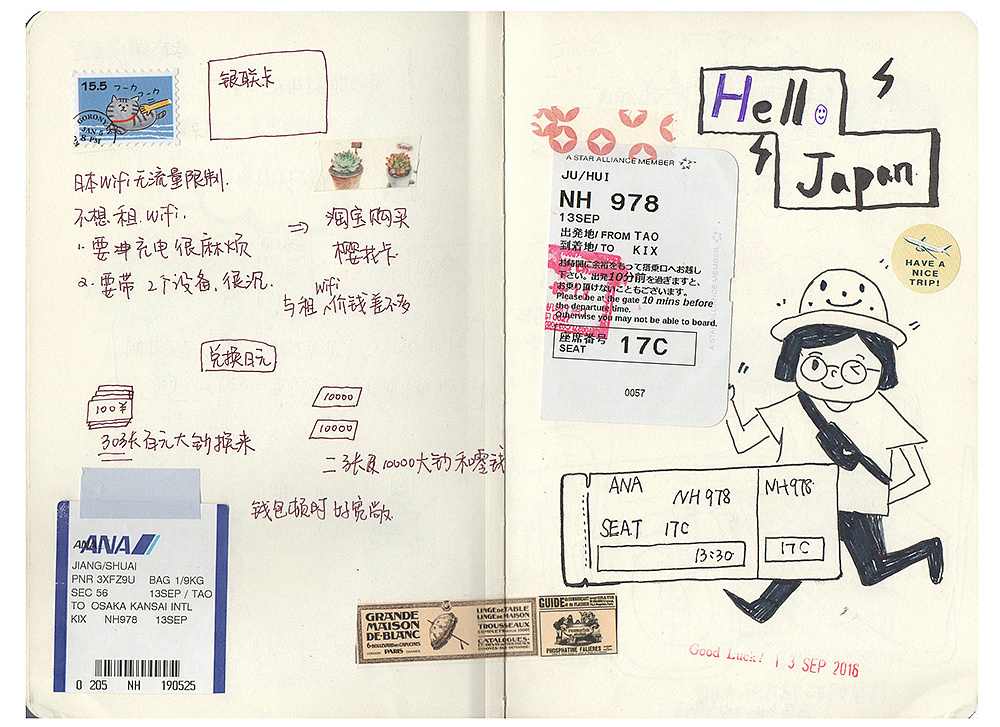 15.5
フーカ フーカ
GORONE
JAN.5
8 PM
银联卡
日本Wifi无流量限制.
不想租.Wifi.
1.要冲充电很麻烦
2.要带 2个设备,很沉.
⇒ 淘宝购买
樱花卡.
与租wifi,价钱差不多
兑换日元
100¥
303张百元大钞换来
10000
10000
二张及10000大钞和零钱
钱包顿时好宽敞.
ANA
ANA
JIANG/SHUAI
PNR 3XFZ9U BAG 1/9KG
SEC 56 13SEP / TAO
TO OSAKA KANSAI INTL
KIX NH978 13SEP
0 205 NH 190525
GRANDE
MAISON
DE-BLANC
6·BOULEVARD des CAPUCINES
LONDON PARIS CANNES
LINGE DE TABLE
LINGE DE MAISON
TROUSSEAUX
CATALOGUES
GUIDE
PHOSPHATINE FALIÈRES
Hello
Japan
A STAR ALLIANCE MEMBER
JU/HUI
NH 978
13SEP
出発地/ FROM TAO
到着地/ TO KIX
お時間に余裕をもって搭乗口へお越し
下さい。出発10分前を過ぎますと、
お乗り頂けないこともございます。
Please be at the gate 10 mins before
the departure time.
Otherwise you may not be able to board.
座席番号
SEAT 17C
0057
A STAR ALLIANCE MEMBER
HAVE A
NICE
TRIP!
ANA NH978
SEAT 17C
13:30
NH978
17C
Good Luck! 13 SEP 2016